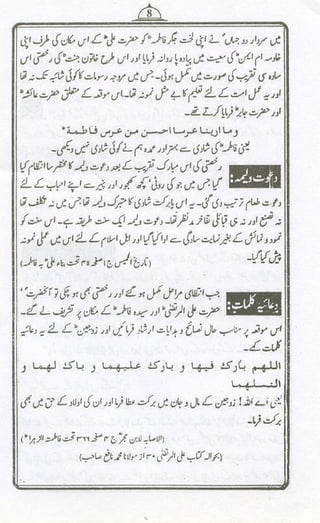 8
میں سردار دو جہاںؐ نے اپنی لخت جگر فاطمہؓ کو حضرت علیؓ کے اس مکان کی طرف اپنی
خادمہ ام ایمنؓ کی معیت میں پیادہ پا روانہ فرمایا اور اس طرح خاتون جنتؓ کی رخصتی
سادہ سی تقریب کی صورت میں مکمل ہوئی۔ جس میں مروجہ رسومات کا کوئی شائبہ تک نہ تھا
اور یہ عمل امت کے لئے تعلیم کا بے مثل نمونہ تھا۔ اس موقعہ کے متعلق حضرت عائشہؓ اور
حضرت جابرؓ فرمایا کرتے تھے۔
وما راینا عرسا احسن من عرس فاطمة"
یعنی فاطمہؓ کی شادی سے بہتر اور عمدہ ہم نے کوئی شادی نہیں دیکھی۔
دعوت ولیمہ: رخصتی کی اس مبارک تقریب کے بعد دعوت ولیمہ کا مختصر سا انتظام کیا
گیا جس میں جو کی روٹی، کچھ کھجور اور پنیر سے اپنے احباب کے لئے
دعوت طعام ترتیب دی گئی۔ یہ اس بابرکت شادی کا متبرک ولیمہ تھا جس میں نہ تکلف تھا
نہ تصنع اور نہ ہی قبائلی تفاخر مد نظر تھا۔ دعوت ولیمہ ایک سنت طریقہ ہے۔ اس سنت کو
نمود و نمائش کے بغیر نہایت سادگی سے ادا کیا گیا اور اہل اسلام کے لئے اس میں عملی نمونہ
پیش کیا گیا۔
دعائیہ کلمات: جب انتظامی مراحل مکمل ہو گئے اور رخصتی بھی ہو چکی تو آنحضرتؐ
حضرت علی المرتضیٰؓ اور سیدہ فاطمہؓ کے مکان پر تشریف لے گئے۔
اس موقعہ پر مناسب حال نصائح و ہدایات ارشاد فرمائیں اور زوجین کے لئے یہ دعائیہ
کلمات کہے۔
اللهم بارک فیها و بارک علیهما و بارک لهما و
النسلهما
یعنی اے اللہ! زوجین کے مال و جان میں برکت عطا فرما اور ان کی اولاد کے حق میں بھی
برکت فرما۔